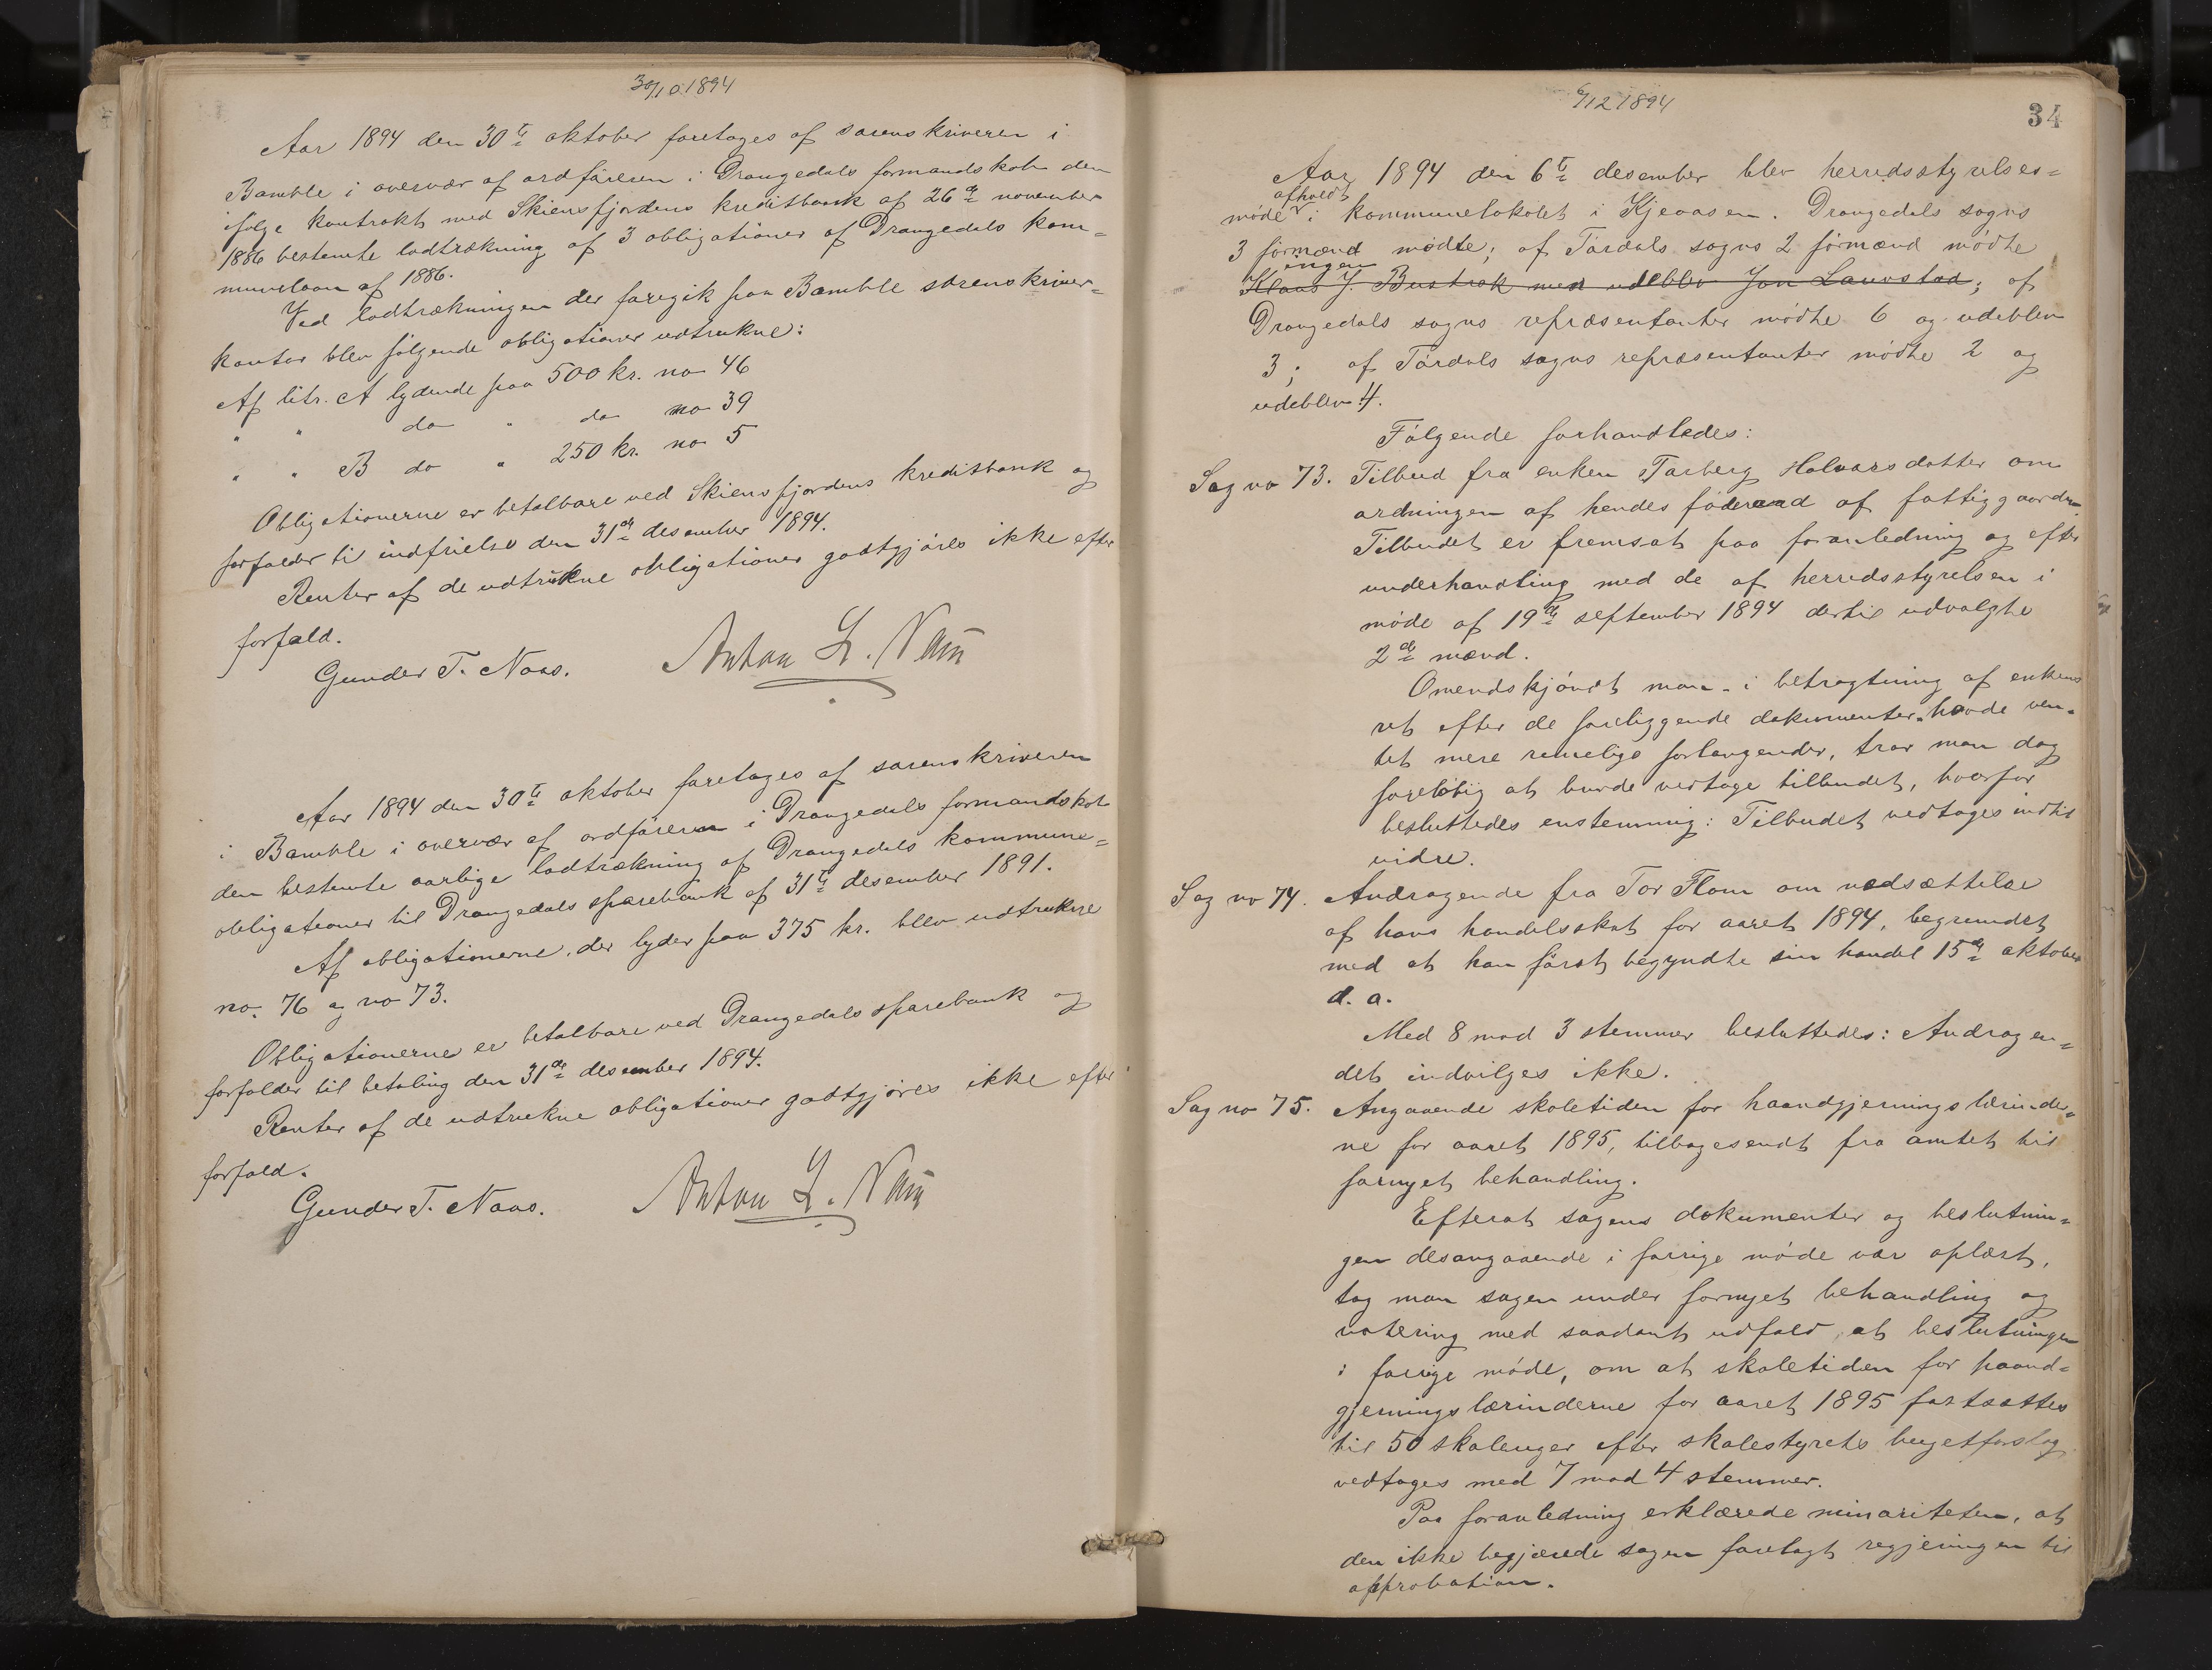 30/10 1894
Aar 1894 den 30te oktober foretages af sorenskriveren i
Bamble i overvær af ordføreren i Drangedals formandskab den
ifølge kontrakt med Skiensfjordens kreditbank af 26de november
1886 bestemte lodtrækning af 3 obligationer af Drangedals kom=
munelaan af 1886.
Ved lodtrækningen der foregik paa Bamble sorenskriver=
kontor blev følgende obligationer udtrukne:
Af litr. A lydende paa 500 kr. no 46
" " do " do no 39
" " B do " 250 kr. no 5
Obligationerne er betalbare ved Skiensfjordens kreditbank og
forfalder til indfrielse den 31de desember 1894.
Renter af de udtrukne obligationer godtgjøres ikke efter
forfald.
Gunder T. Naas. Anton L. Næss
Aar 1894 den 30te oktober foretages af sorenskriveren
i Bamble i overvær af ordføreren i Drangedals formandskab
den bestemte aarlige lodtrækning af Drangedals kommune=
obligationer til Drangedals sparebank af 31te desember 1891.
Af obligationerne, der lyder paa 375 kr. blev udtrukne
no. 76 og no 73.
Obligationerne er betalbare ved Drangedals sparebank og
forfalder til betaling den 31de desember 1894.
Renter af de udtrukne obligationer godtgjøres ikke efter
forfald.
Gunder T. Naas. Anton L.
6/12 1894
34
Aar 1894 den 6te desember blev herredsstyrelses=
afholdt
møde i kommunelokalet i Kjeaasen. Drangedals sogns
3 formænd mødte; af Tørdals sogns 2 formænd mødte
ingen
Klaus J. Bustrak men udeblev Jon Lauvstad; af
Drangedals sogns repræsentanter mødte 6 og udeblev
3; af Tørdals sogns repræsentanter mødte 2 og
udeblev 4.
Følgende forhandledes:
Sag no 73. Tilbud fra enken Tarberg Halvorsdatter om
ordningen af hendes føderaad af fattiggaarden.
Tilbudet er fremsat paa foranledning og efter
underhandling med de af herredsstyrelsen i
møde af 19de september 1894 dertil udvalgte
2de mænd.
Omendskjøndt man - i betragtning af enkens
ret efter de foreliggende dokumenter - havde ven=
tet mere rimelige forlangender, tror man dog
foreløbig at burde vedtage tilbudet, hvorfor
besluttedes enstemmig: Tilbudet vedtages indtil
vidre.
Sag no 74. Andragende fra Tor Flom om nedsættelse
af hans handelsskat for aaret 1894, begrundet
med at han først begyndte sin handel 15de oktober
d. a.
Med 8 mod 3 stemmer besluttedes: Andragen=
det indvilges ikke.
Sag no 75. Angaaende skoletiden for haandgjerningslærinder=
ne for aaret 1895, tilbagesendt fra amtet til
fornyet behandling.
Efterat sagens dokumenter og beslutnin=
gen desangaaende i forrige møde var oplæst,
tog man sagen under fornyet behandling og
votering med saadant udfald, at beslutningen
i forrige møde, om at skoletiden for haand=
gjerningslærinderne for aaret 1895 fastsættes
til 50 skoleuger efter skolestyrets bugetforslag
vedtages med 7 mod 4 stemmer.
Paa foranledning erklærede minoriteten, at
den ikke begjærede sagen forelagt regjeringen til
approbation.